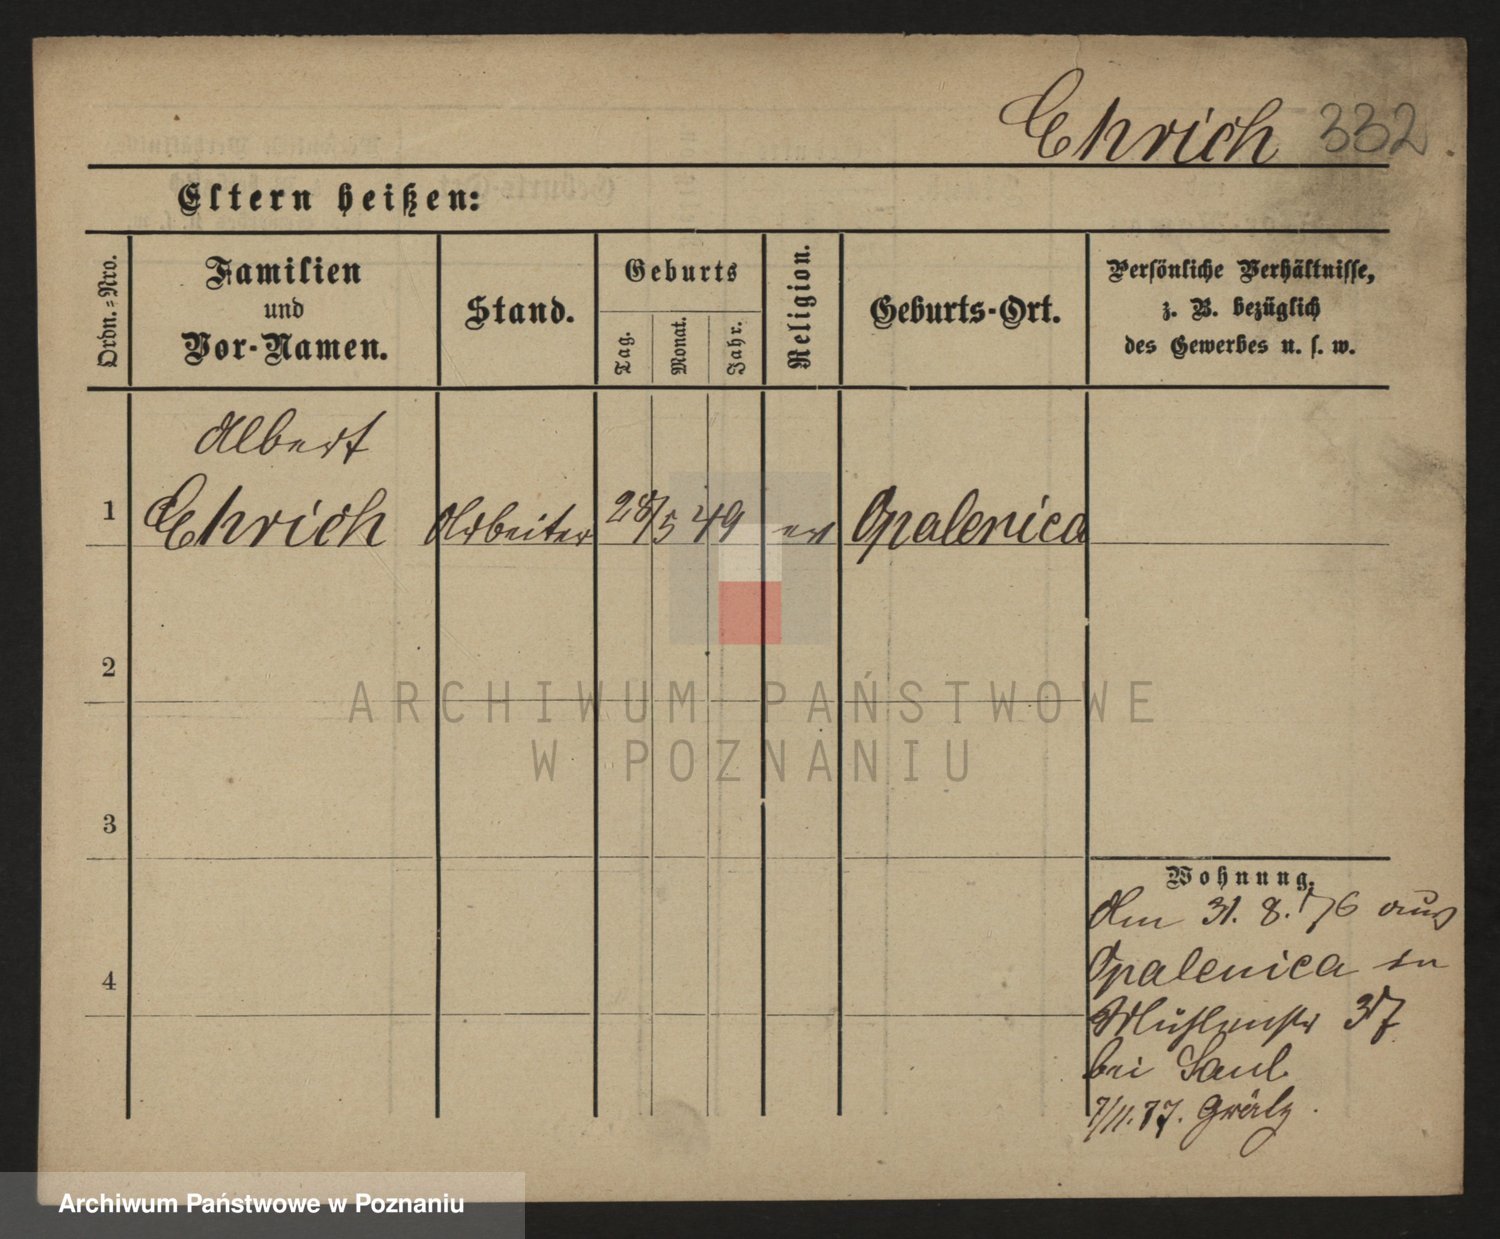 Ehrich 332
Eltern heißen:
Ordn.-Nro.
Familien
und
Vor-Namen.
Stand.
Geburts
Tag.
Monat.
Jahr.
Religion.
Geburts-Ort.
Persönliche Verhältnisse,
z. B. bezüglich
des Gewerbes u. s. w.
Albert
1 Ehrich Arbeiter 28/5 49 ev Opalenica
2
3
4
Wohnung.
Am 31. 8. 76 aus
Opalenica in
Mühlenstr 37
bei Saul
7/11. 77. Grätz.
ARCHIWUM PAŃSTWOWE
W POZNANIU
Archiwum Państwowe w Poznaniu